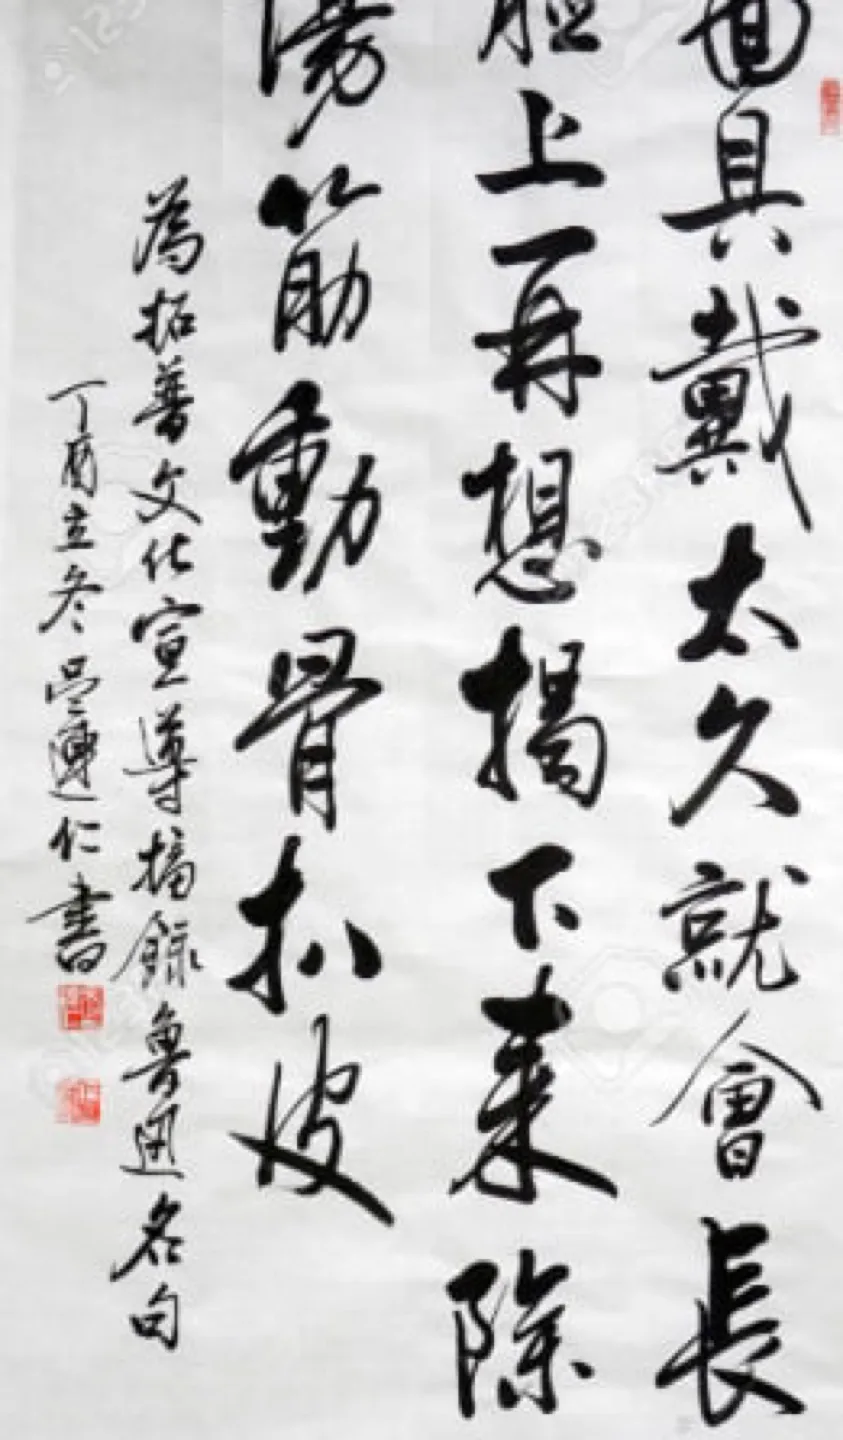 面具戴太久就會長
臉上再想揭下來除
筋動骨扒皮
為拓普文化宣導摘錄魯迅名句
丁酉立冬 仁書